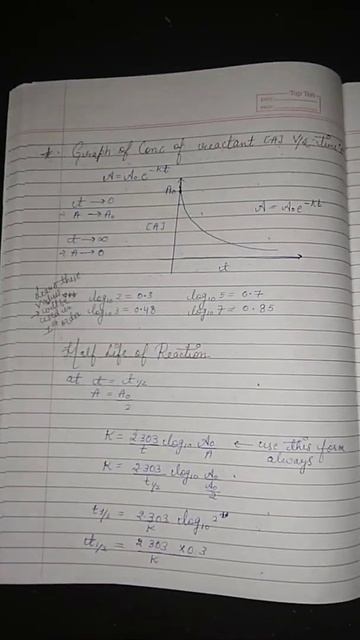 Top Ten
*. Graph of Conc of reactant [A] V/s time
A = A₀e^-kt
A₀
t → 0
A → A₀
A = A₀e^-kt
[A]
t → ∞
A → 0
t
learn these
values
log₁₀2 = 0.3 log₁₀5 = 0.7
log₁₀3 = 0.48 log₁₀7 = 0.85
Half Life of Reaction
at t = t1/2
A = A₀/2
K = 2.303/t log₁₀ A₀/A ← use this form
always
K = 2.303/t1/2 log₁₀ A₀/(A₀/2)
t1/2 = 2.303/K log₁₀ 2
t1/2 = 2.303 × 0.3/K